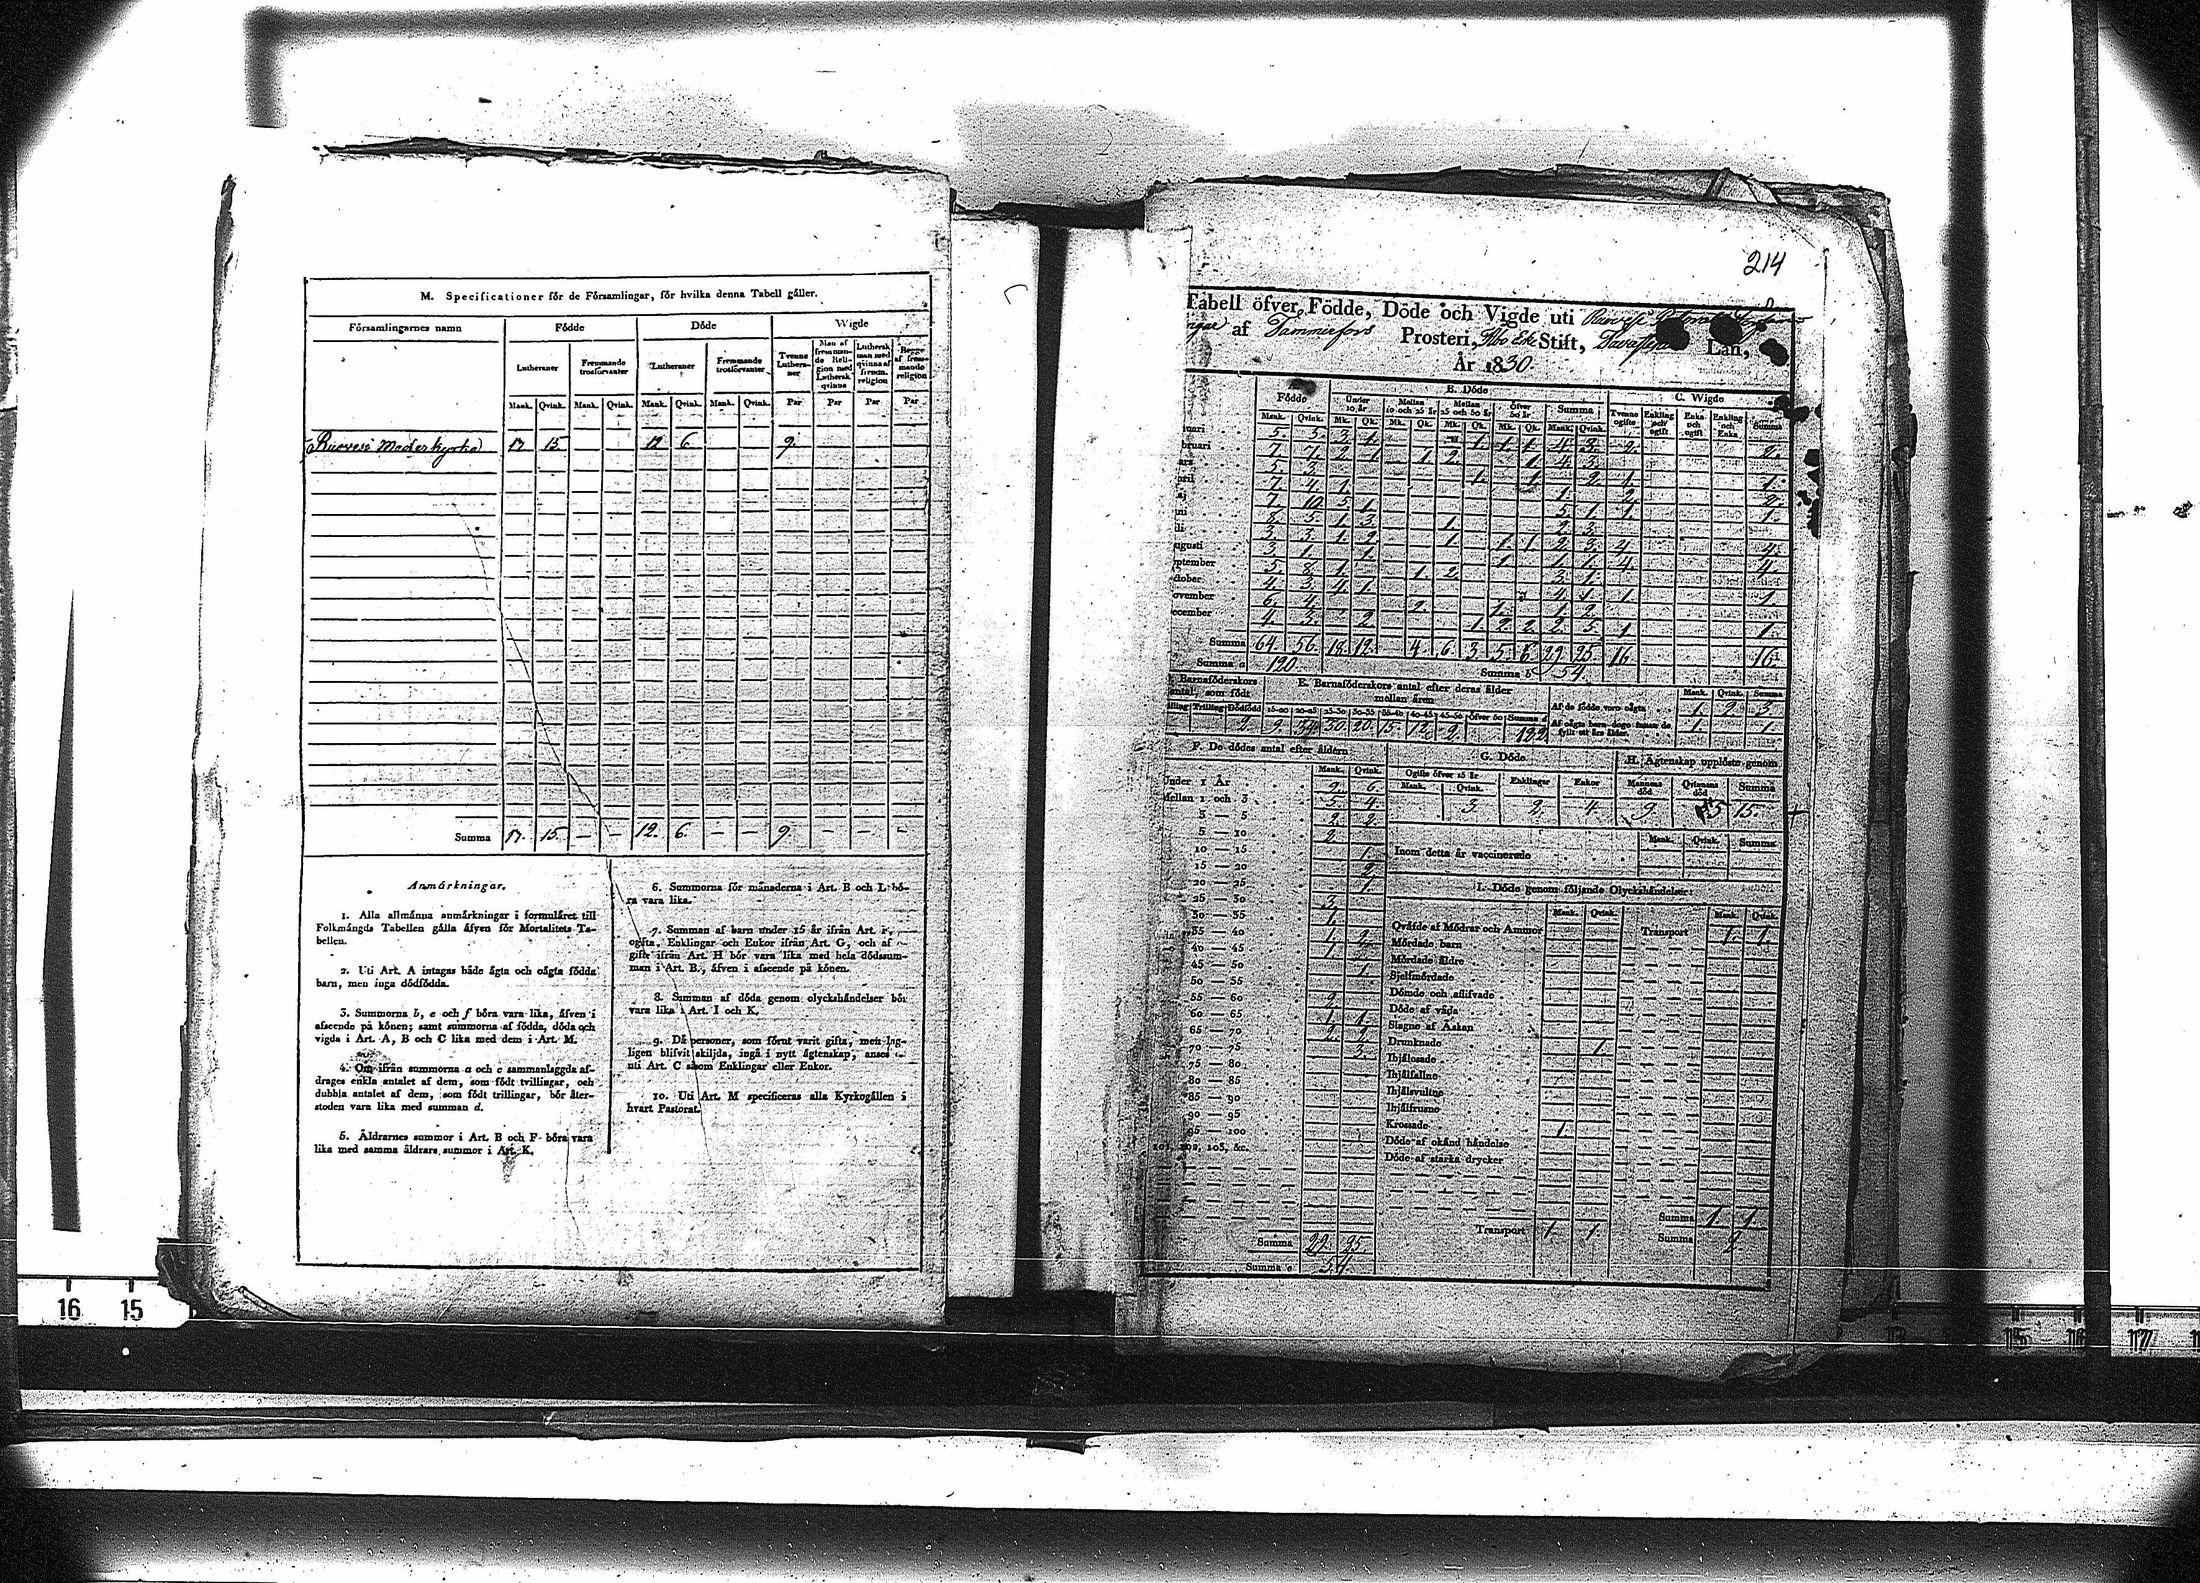 M. Specificationer för de Församlingar, för hvilka denna Tabell gäller.
Församlingarnes namn Födde Döde Wigde
Lutheraner Fremmande trosförvanter Lutheraner Fremmande trosförvanter Tvenne Lutheraner Man af fremmande Religion med Luthersk qvinna Luthersk man med qvinna af fremm. religion Begge af fremmande religion
Mank. Qvink. Mank. Qvink. Mank. Qvink. Mank. Qvink. Par Par Par Par
Ruovesi Moderkyrka 17. 15. 12 6. 9.
Summa 17. 15. — — 12. 6. — — 9. — — —
Anmärkningar.
1. Alla allmänna anmärkningar i formuläret till
Folkmängds Tabellen gälla äfven för Mortalitets Ta-
bellen.
2. Uti Art. A intagas både ägta och oägta födda
barn, men inga dödfödda.
3. Summorna b, e och f böra vara lika, äfven i
afseende på könen; samt summorna af födda, döda och
vigda i Art. A, B och C lika med dem i Art. M.
4. Om ifrån summorna a och c sammanlaggda af-
drages enkla antalet af dem, som födt tvillingar, och
dubbla antalet af dem, som födt trillingar, bör åter-
stoden vara lika med summan d.
5. Äldrarnes summor i Art. B och F böra vara
lika med samma åldrars summor i Art. K.
6. Summorna för månaderna i Art. B och L bö-
ra vara lika.
7. Summan af barn under 15 år ifrån Art. F,
ogifta, Enklingar och Enkor ifrån Art. G, och af
gifte ifrån Art. H bör vara lika med hela dödssum-
man i Art. B., äfven i afseende på könen.
8. Summan af döda genom olyckshändelser bör
vara lika i Art. I och K.
9. Då personer, som förut varit gifta, men lag-
ligen blifvit skiljda, ingå i nytt ägtenskap, anses
uti Art. C såsom Enklingar eller Enkor.
10. Uti Art. M specificeras alla Kyrkogällen i
hvart Pastorat.
214
Tabell öfver Födde, Döde och Vigde uti
af Tammerfors Prosteri, Åbo Erke Stift, Län,
År 1830.
Födde B. Döde C. Wigde
Under 10 år Mellan 10 och 25 år Mellan 25 och 50 år Öfver 50 år Summa Tvenne ogifte Enkling och ogift Enka och ogift Enkling och Enka Summa
Mank. Qvink. Mk. Qk. Mk. Qk. Mk. Qk. Mk. Qk. Mank. Qvink.
uari 5. 5. 3. 1. 1. 1. 1. 4. 3. 2. 2.
bruari 7. 7. 2. 1 1 2. 1. 4. 3.
ars 5. 3. 1. 1. 2. 1. 1.
pril 7. 4. 1. 1. 2. 2.
aj 7. 10. 5. 1. 5. 1. 1. 1.
uni 8. 5. 1. 3. 1. 2. 3.
uli 3. 3. 1. 2. 1. 1. 1. 2. 3. 4. 4.
ugusti 3. 1. 1. 1. 1. 1. 4. 4.
eptember 5. 8. 1. 1. 2. 3. 1.
ctober 4. 3. 4. 1. 4. 1. 1. 1.
ovember 6. 4. 2. 1. 1. 2.
ecember 4. 3. 2. 1. 2. 2. 2. 5. 1. 1.
Summa 64. 56. 18. 12. 4. 6. 3. 5. 6. 29. 25. 16. 16.
Summa a 120. Summa b 54.
Barnaföderskors antal, som födt E. Barnaföderskors antal efter deras ålder mellan åren
Mank. Qvink. Summa
Trilling Dödfödd 15-20 20-25 25-30 30-35 35-40 40-45 45-50 Öfver 50 Summa d
2. 9. 34. 30. 20. 15. 12. 2. 122
Af de födde voro oägta 1. 2. 3
Af oägta barn dogo innan de fyllt ett års ålder. 1. 1.
F. De dödes antal efter åldern
Mank. Qvink.
Under 1 År 9. 6.
Mellan 1 och 3 5. 4.
3 — 5 2. 2.
5 — 10 2.
10 — 15 1.
15 — 20 2.
20 — 25 1.
25 — 30 3.
30 — 35 1.
35 — 40 1. 2.
40 — 45 1.
45 — 50 1.
50 — 55
55 — 60 2.
60 — 65 1. 1.
65 — 70 2. 2.
70 — 75 3.
75 — 80
80 — 85
85 — 90
90 — 95
95 — 100
101, 102, 103, &c.
Summa 29. 25.
Summa e 54.
G. Döde
Ogifte öfver 15 år Enklingar Enkor
Mank. Qvink.
3. 2. 4.
H. Ägtenskap upplöste genom
Mannens död Qvinnans död Summa
9. 15.
Mank. Qvink. Summa
Inom detta år vaccinerade
I. Döde genom följande Olyckshändelser:
Mank. Qvink. Mank. Qvink.
Qväfde af Mödrar och Ammor Transport 1. 1.
Mördade barn
Mördade äldre
Sjelfmördade
Dömde och aflifvade
Döde af våda
Slagne af Åskan
Drunknade 1.
Ihjälosade
Ihjälfallne
Ihjälsvultne
Ihjälfrusne
Krossade 1.
Döde af okänd händelse
Döde af starka drycker
Transport 1 1. Summa 1 1.
Summa 2.
16 15
15 16 17